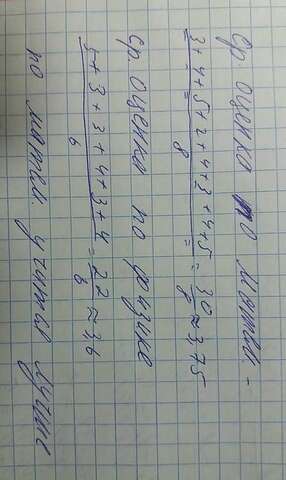 Ср. оценка по матем. -
3+4+5+2+4+3+4+5/8 = 30/8 ≈ 3,75
Ср. оценка по физике
5+3+3+4+3+4/6 = 22/6 ≈ 3,6
по матем. учится лучше